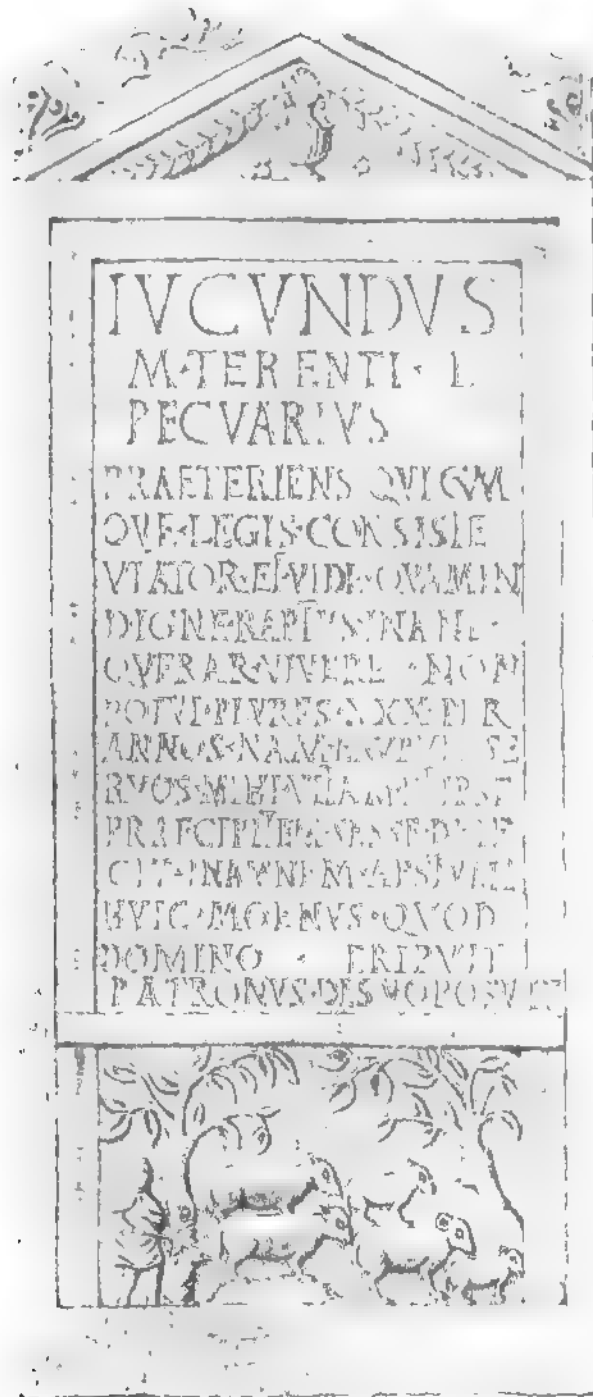 IVCVNDVS
M·TERENTI·L
PECVARIVS
PRAETERIENS QVICVM
QVE·LEGIS·CONSISTE
VIATOR·ET·VIDE·QVAM·IN
DIGNE·RAPTVS·INANE
QVERAR·VIVERE·NON
POTVI·PLVRES·XXX·PER
ANNOS·NAM·ERVPVIT·SE
RVOS·MIHI·VITAM·ET·IPSE
PRAECIPITEM·SESSE·DEIE
CIT·IN·AMNEM·APSTVLIT
HVIC·MOENVS·QVOD
DOMINO·ERIPVIT
PATRONVS·DE·SVO·POSVIT